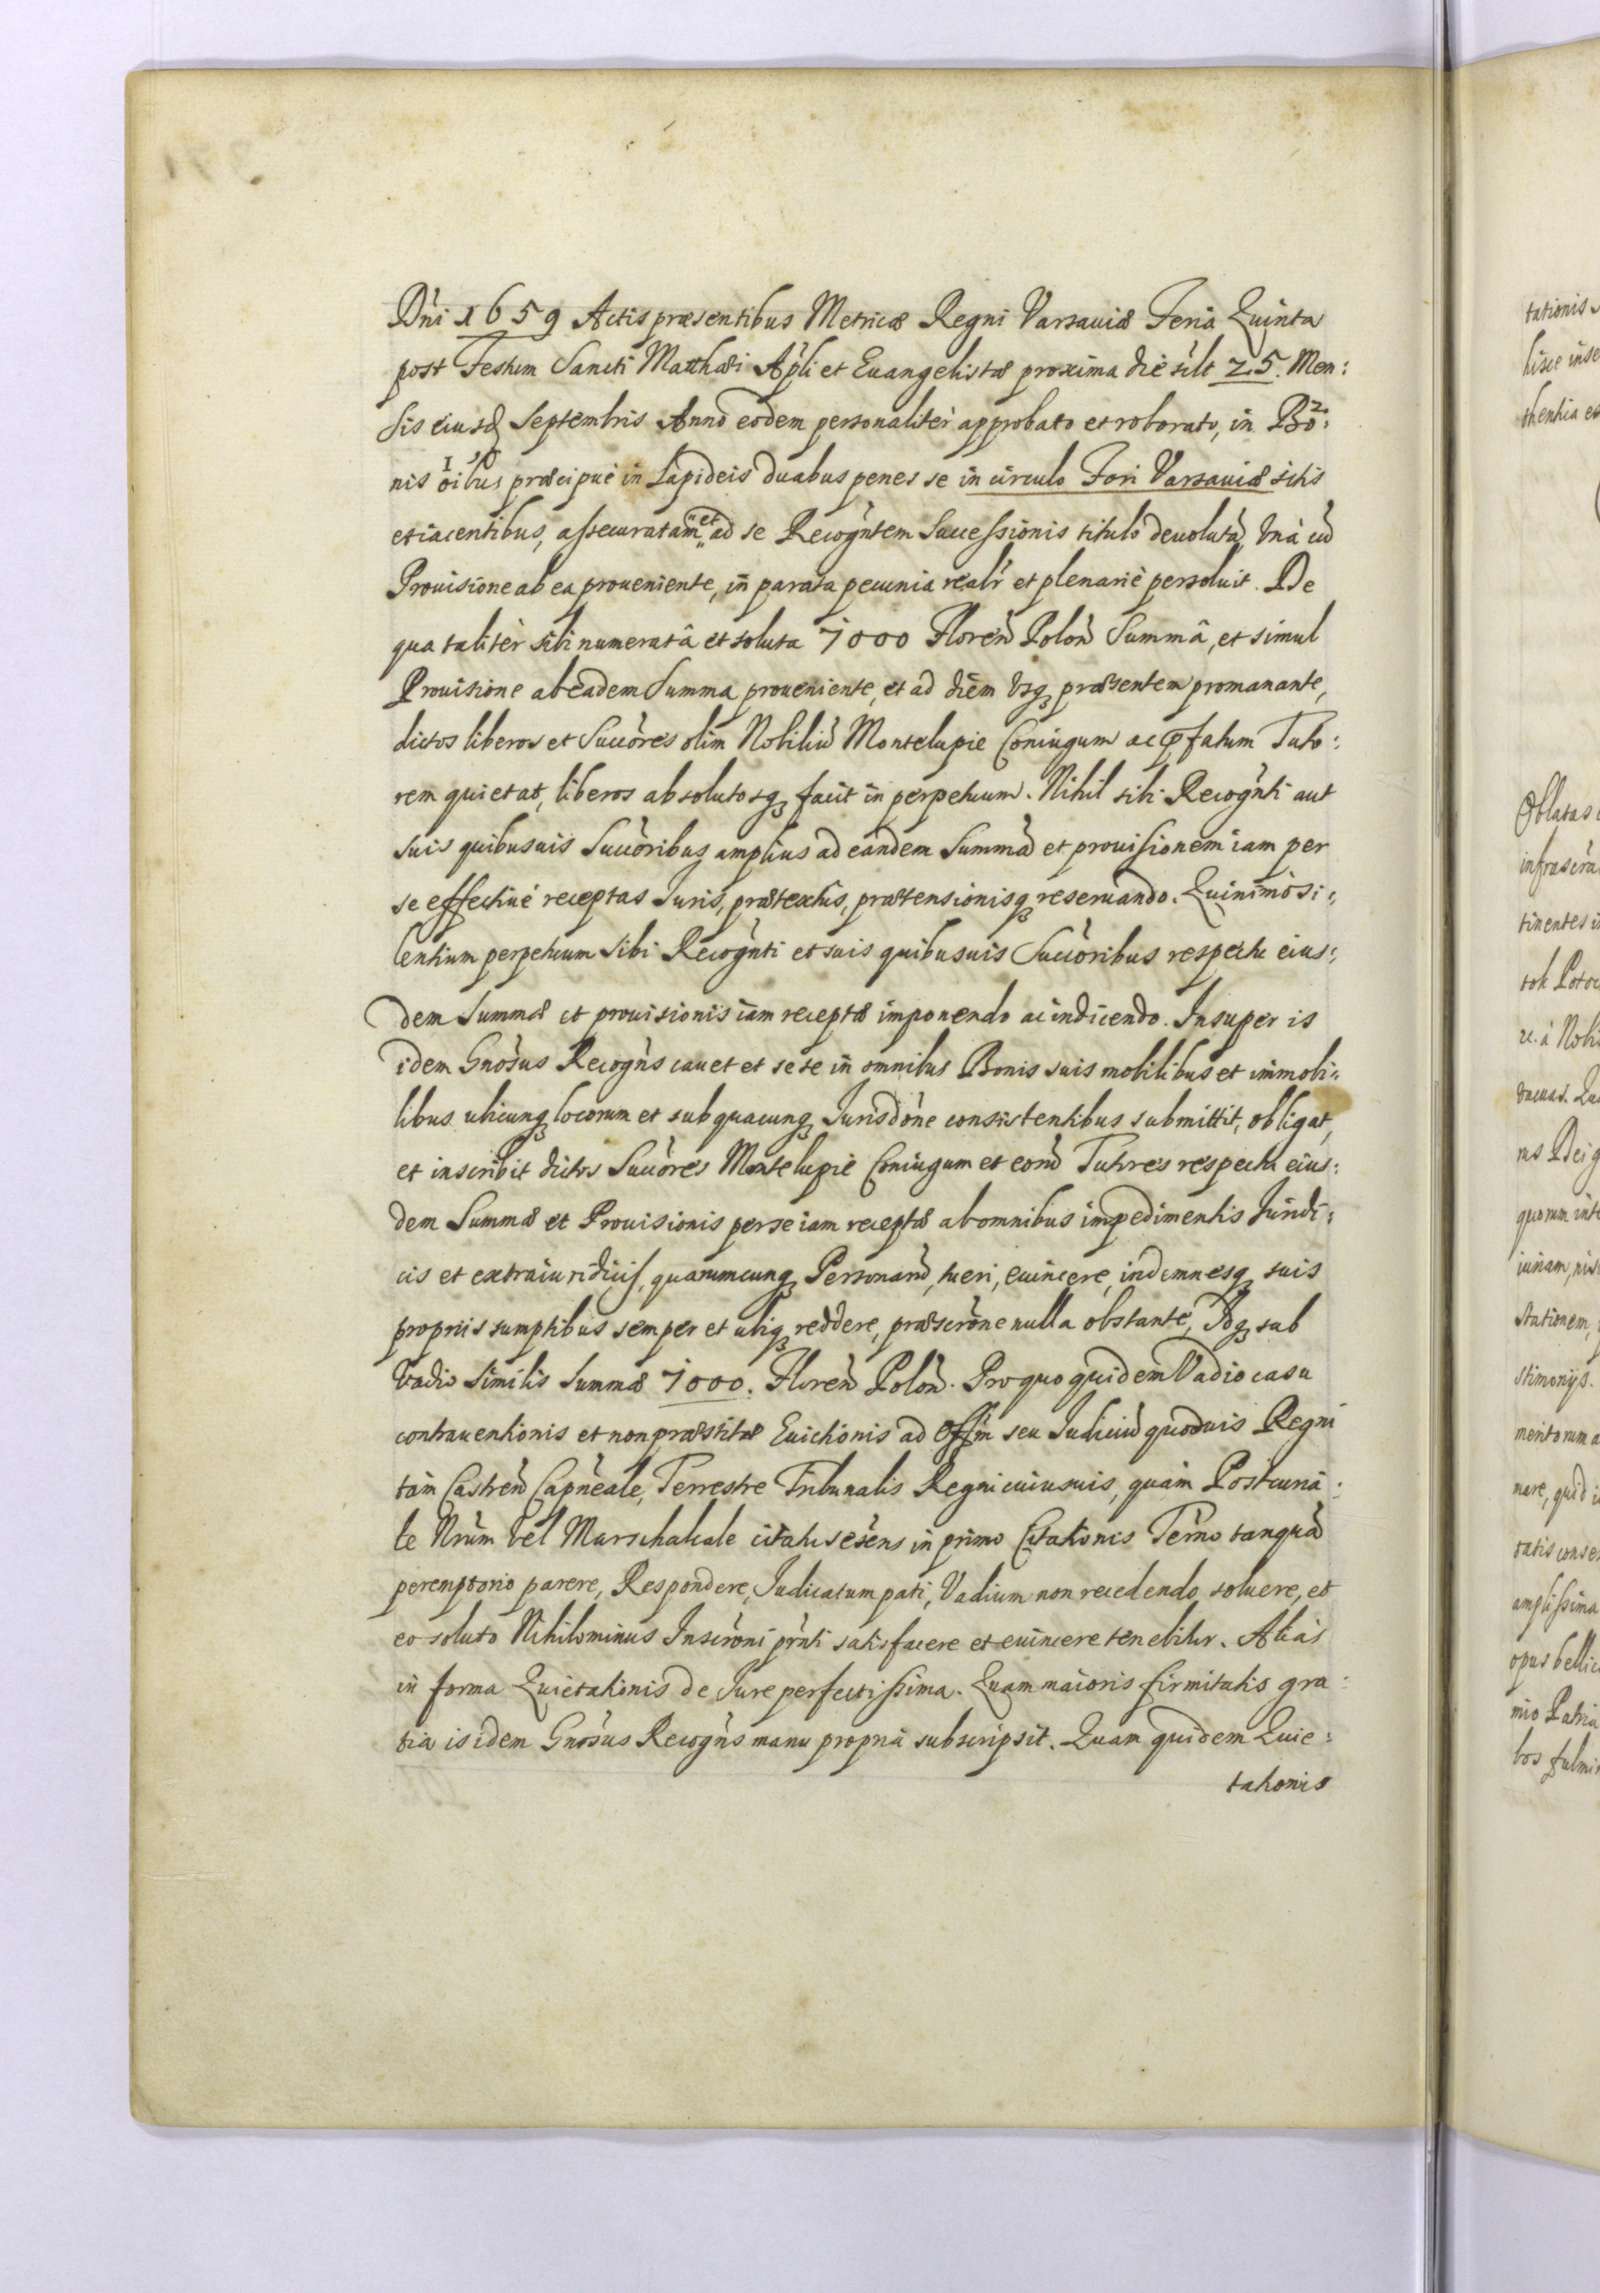 Dni 1659 Actis praesentibus Metricae Regni Varsauiae Feria Quinta
post Festum Sancti Matthaei Apli et Euangelistae proxima die scilt 25. Men:
sis eiusd Septembris Anno eodem personaliter approbato et roborato, in Bo:
nis oibus praecipuè in Lapideis duabus penes se in circulo Fori Varsauiae sitis
et iacentibus, assecuratam et ad se Recogntem Successionis titulo deuolutã, Vnà cũ
Prouisione ab ea proueniente, in parata pecunia realr et plenariè persoluit. De
qua talitèr sibi numeratâ et soluta 7000 Floren Polon Summâ, et simul
Prouisione ab eadem Summa proueniente, et ad diem vsq praesentem promanante,
dictos liberos et Succores olim Nobiliũ Montelupie Coniugum ac pfatum Tuto:
rem quietat, liberos absolutosq facit in perpetuum. Nihil sibi Recognti aut
suis quibusuis Succoribus amplius ad eandem Summã et prouisionem iam per
se effectiuè receptas Juris, praetextus, praetensionisq reseruando. Quinimò si:
lentium perpetuum sibi Recognti et suis quibusuis Succoribus respectu eius:
dem Summae et prouisionis iam receptae imponendo ac indicendo. Insuper is
idem Gnosus Recogns cauet et sese in omnibus Bonis suis mobilibus et immobi:
libus ubicunq locorum et sub quacunq Jurisdone consistentibus submittit, obligat,
et inscribit dictos Succores Montelupie Coniugum et eorũ Tutores respectu eius:
dem Summae et Prouisionis per se iam receptae ab omnibus impedimentis Juridi:
cis et extraiuridicis, quarumcunq Personarũ, tueri, euincere, indemnesq suis
propriis sumptibus semper et ubiq reddere, praescrone nulla obstante, Idq sub
Vadio similis Summae 7000. Floren Polon. Pro quo quidem Vadio casu
contrauentionis et non praestitae Euictionis ad Offm seu Judiciũ quoduis Regni
tàm Castren Capneale, Terrestre Tribunalis Regni cuiusuis, quàm Postcuria:
le Nrum vel Marschalcale citatus in primo Citationis Termo tanquã
peremptorio parere, Respondere, Judicatum pati, Vadium non recedendo soluere, et
eo soluto Nihilominus Inscroni prnti satisfacere et euincere tenebitur. Alias
in forma Quietationis de Jure perfectissima. Quam maioris firmitatis gra:
tia is idem Gnosus Recogns manu propria subscripsit. Quam quidem Quie:
tationis